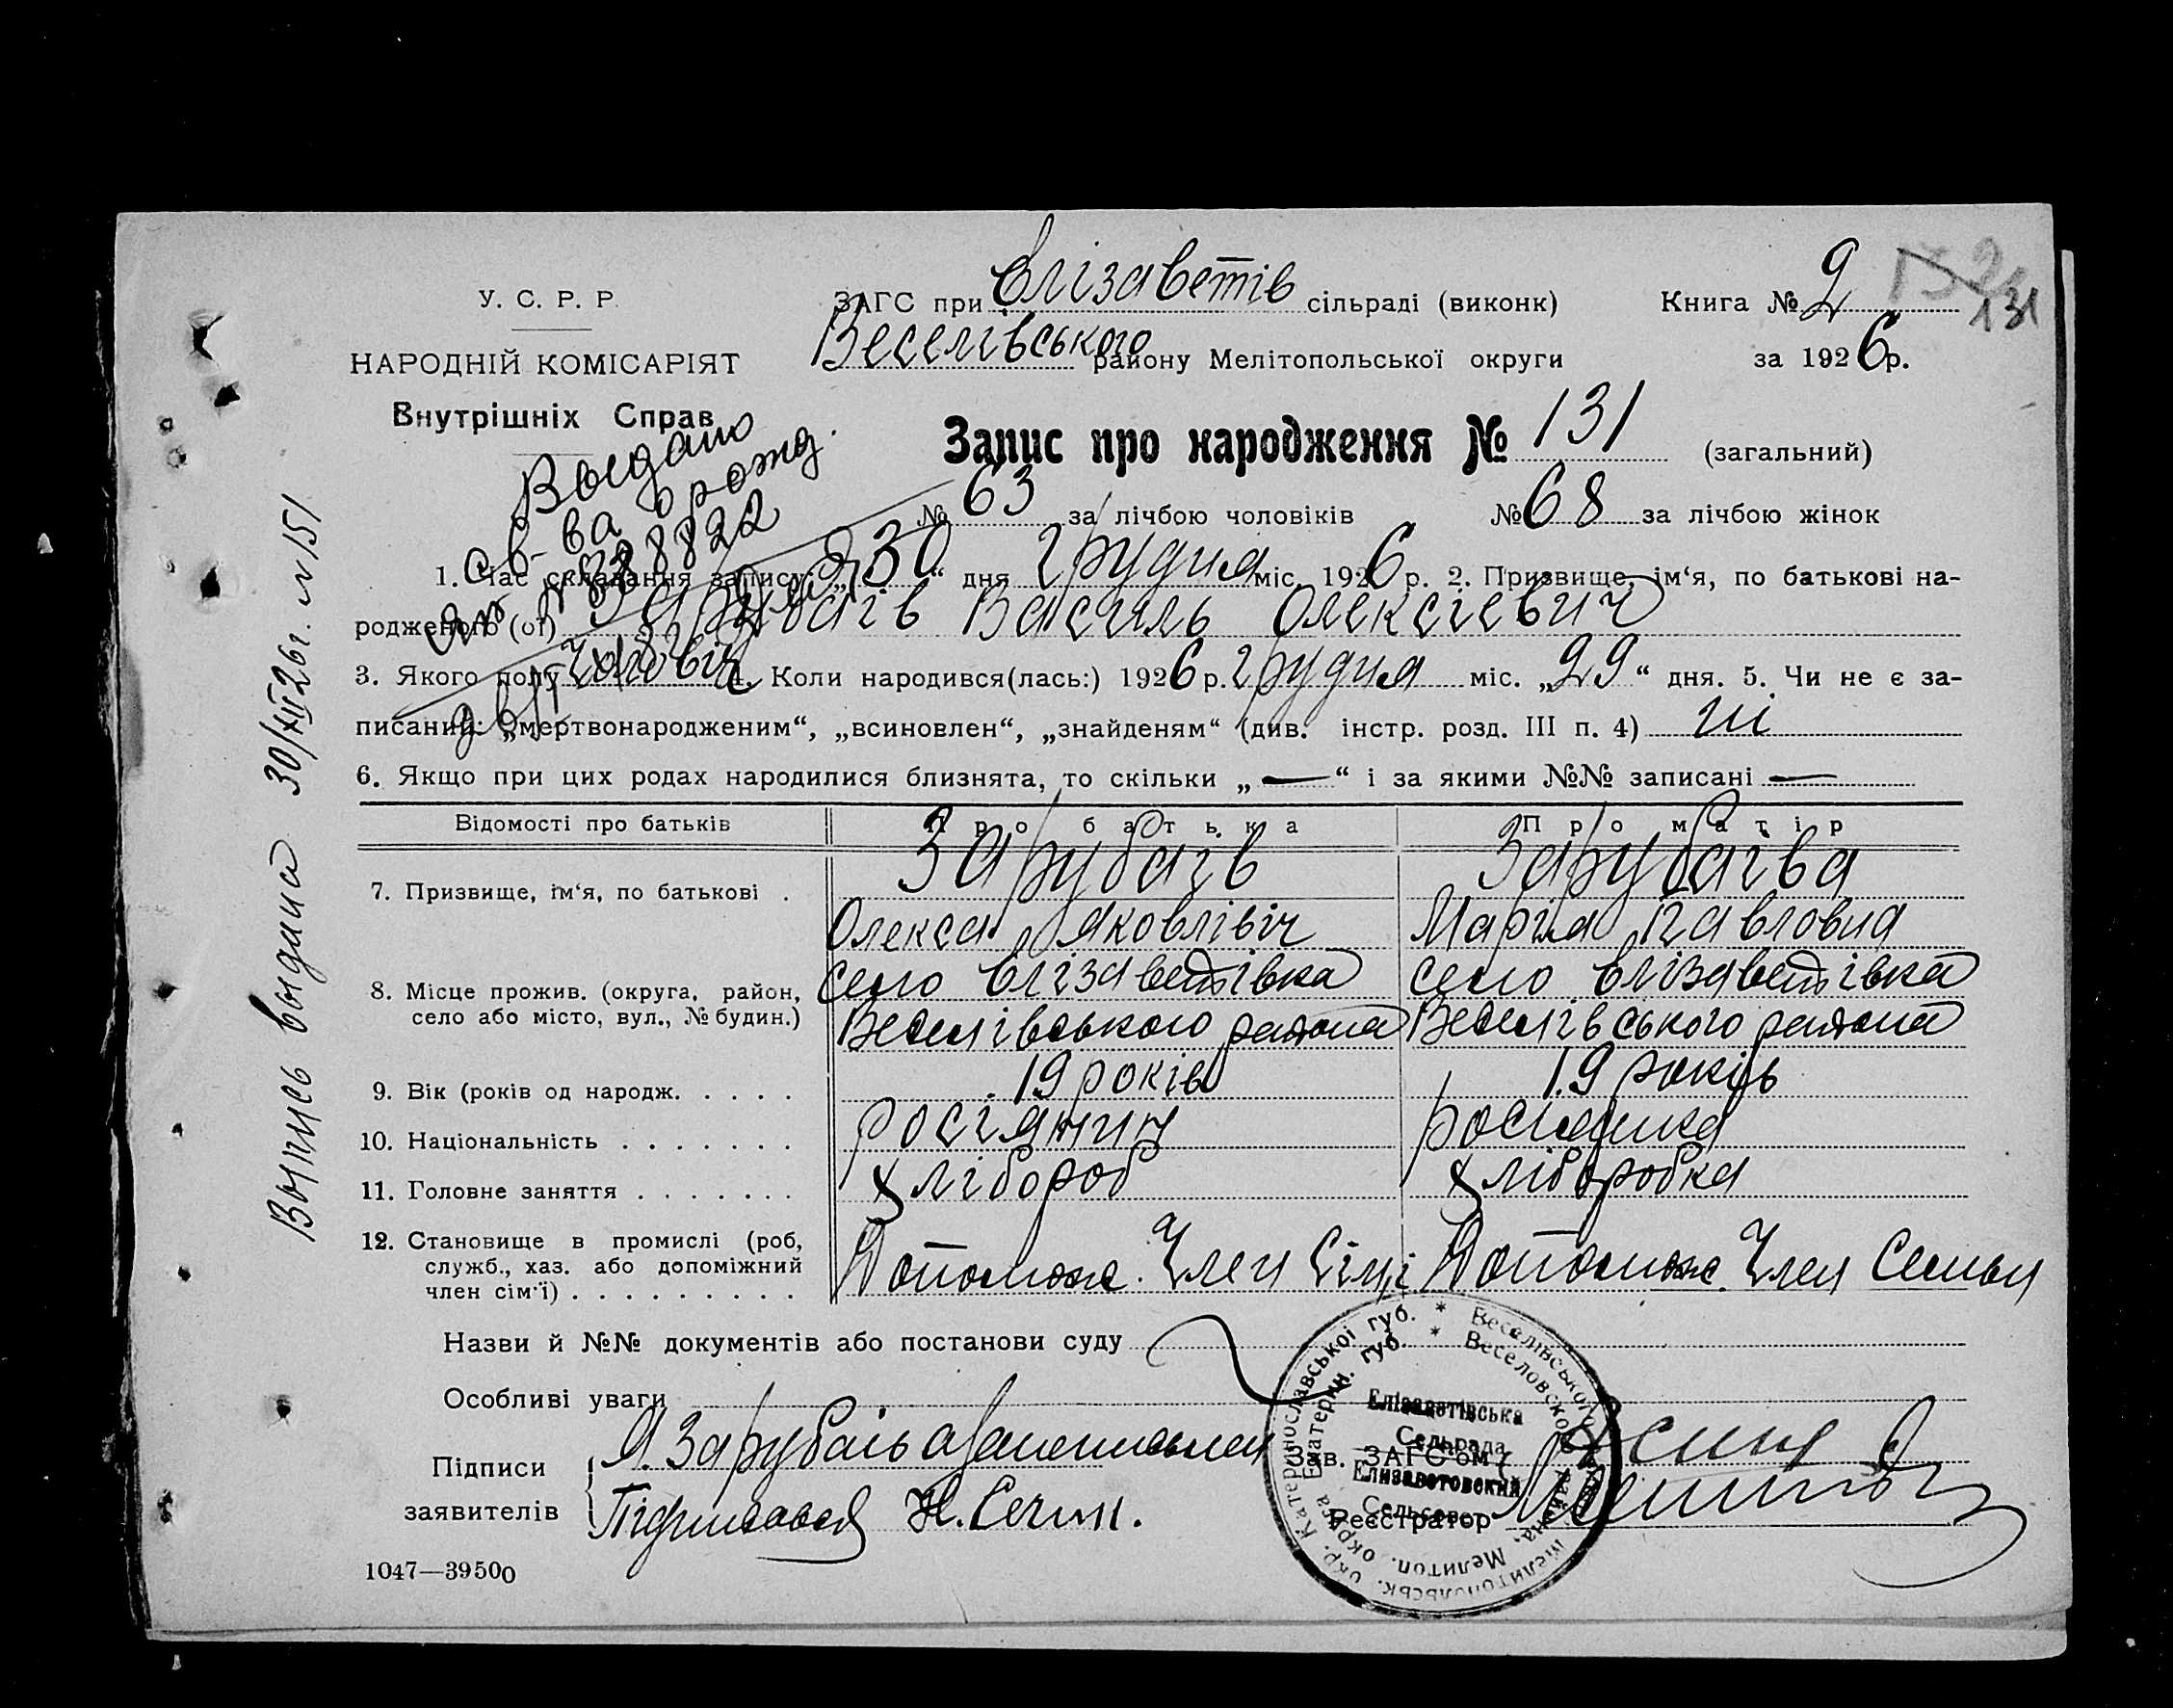 У. С. Р. Р.
НАРОДНІЙ КОМІСАРІЯТ
Внутрішніх Справ
ЗАГС при Єлізаветів сільраді (виконк)
Веселівського району Мелітопольської округи
Книга № 2
131
за 1926 р.
Запис про народження № 131 (загальний)
№ 63 за лічбою чоловіків № 68 за лічбою жінок
Выдано
св-ва о рожд.
1. Час складання запису: „30“ дня Грудня міс. 1926 р. 2. Призвище, ім‘я, по батькові на-
родженого (ої) Зарубаів Василь Олексіевич
3. Якого полу чоловіч 4. Коли народився(лась:) 1926 р. Грудня міс. „29“ дня. 5. Чи не є за-
писаний: „мертвонародженим“, „всиновлен“, „знайденям“ (див. інстр. розд. III п. 4) ні
6. Якщо при цих родах народилися близнята, то скільки „—“ і за якими №№ записані —
Відомості про батьків Про батька Про матір
7. Призвище, ім‘я, по батькові . Зарубаів Зарубаіва
Олекса Яковлівіч Марія Павловна
8. Місце прожив. (округа, район, село Єлізаветівка село Єлізаветівка
село або місто, вул., № будин.) Веселівського района Веселівського района
9. Вік (років од народж. . . . . 19 років 19 років
10. Національність . . . . . . . росіянин росіянка
11. Головне заняття . . . . . . . хлібороб хліборобка
12. Становище в промислі (роб,
служб., хаз. або допоміжний
член сім‘ї) . . . . . . . . . Допомож. Член Сімі Допомож. Член Семьи
Назви й №№ документів або постанови суду
Особливі уваги
Підписи
заявителів
Я. Зарубаів
Зав. ЗАГС‘ом
Реєстратор
Єлізаветівська
Сельрада
Елизаветовский
Сельсовет
1047—39500
Выпись выдана 30/XII 26 г. № 151